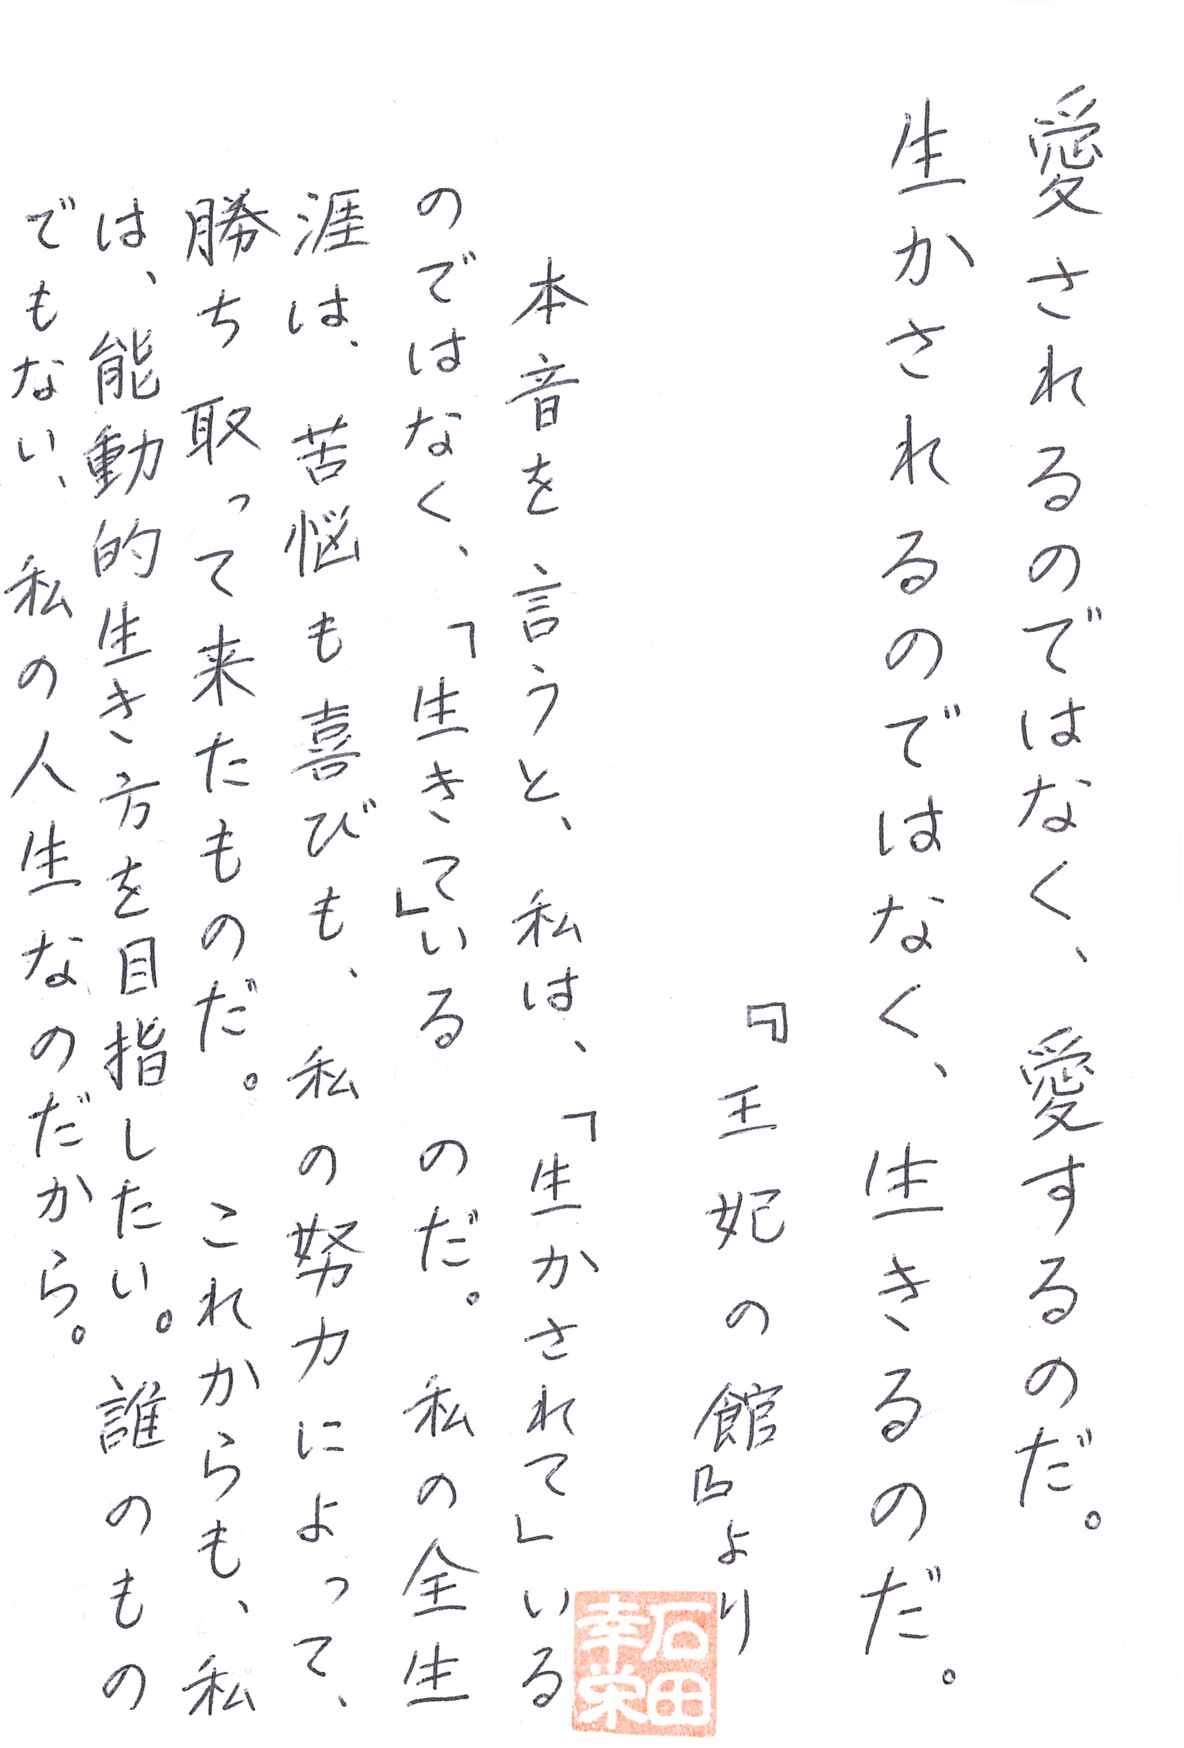 愛されるのではなく、愛するのだ。
生かされるのではなく、生きるのだ。
『王妃の館』より
石田
幸栄
本音を言うと、私は、「生かされて」いる
のではなく、「生きて」いるのだ。私の全生
涯は、苦悩も喜びも、私の努力によって、
勝ち取って来たものだ。これからも、私
は、能動的生き方を目指したい。誰のもの
でもない、私の人生なのだから。